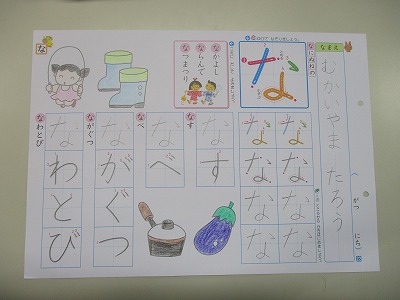 なまえ
むかいやま たろう
(がつ にち)
なにぬねの
な
な
なかよし
ならんで
なつまつり
な
な な
な な
な な
な な
な な
なす
なす
なべ
なべ
ながぐつ
ながぐつ
なわとび
なわとび